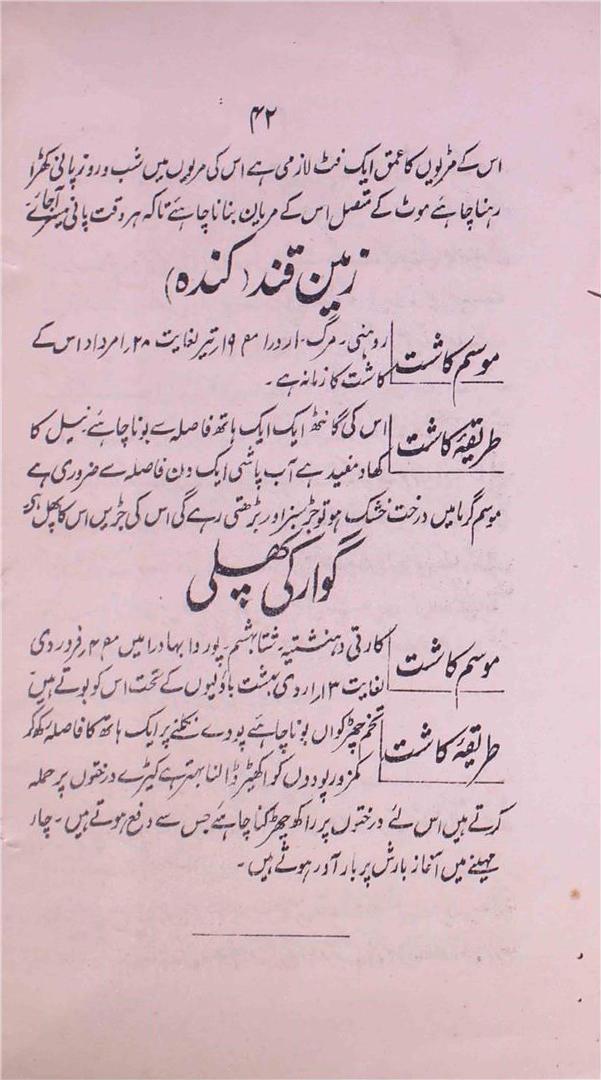 ۴۲
اس کے مڑیوں کا عمق ایک فٹ لازمی ہے اس کی مریوں میں شب و روز پانی کھڑا
رہنا چاہئے موٹ کے متصل اس کے مریان بنانا چاہئے تاکہ ہر وقت پانی میسر آجائے۔
زمین قند (کندہ)
موسم کاشت
روہنی۔ مرگ۔ اردرا م ۱۹؍تیر لغایت ۲۸؍امرداد اس کے
کاشت کا زمانہ ہے۔
طریقۂ کاشت
اس کی گانٹھ ایک ایک ہاتھ فاصلہ سے بونا چاہئے نیل کا
کھاد مفید ہے آب پاشی ایک دن فاصلہ سے ضروری ہے
موسم گرما میں درخت خشک ہو تو جڑ سبز اور بڑھتی رہے گی اس کی جڑیں اس کا پھل ہی
گوار کی پھلی
موسم کاشت
کارتی دہنشٹیہ شتابہشم۔ پوروا بہادرا میں م ۴؍فروردی
لغایت ۱۳؍اردی بہشت باؤلیوں کے تحت اس کو بوتے ہیں
طریقۂ کاشت
تخم چھڑکواں بونا چاہئے پودے نکلنے پر ایک ہاتھ کا فاصلہ رکھ کر
کمزور پودوں کو اکھیڑ ڈالنا بہتر ہے کیڑے درختوں پر حملہ
کرتے ہیں اس لئے درختوں پر راکھ چھڑکنا چاہئے جس سے دفع ہوتے ہیں۔ چار
مہینے میں آغاز بارش پر بار آور ہوتے ہیں۔